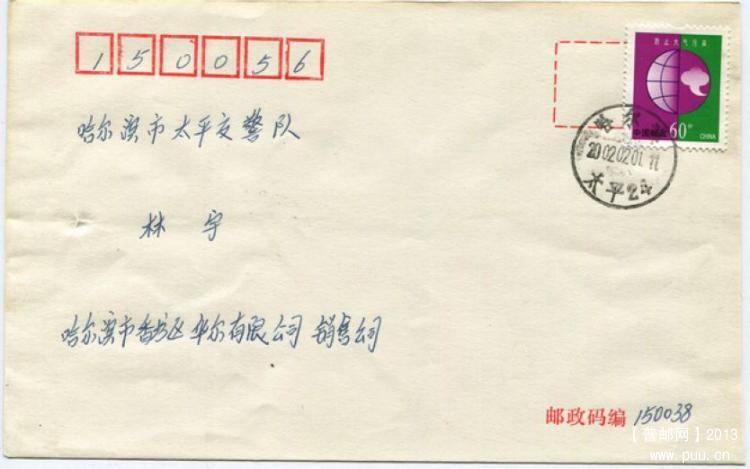 150056
防止大气污染
中国邮政 60分 CHINA
哈尔
2002.02.01.11
太平2
哈尔滨市太平交警队
林宇
哈尔滨市香坊区华尔有限公司 销售公司
邮政码编 150038
【普邮网】2013
www.puu.cn